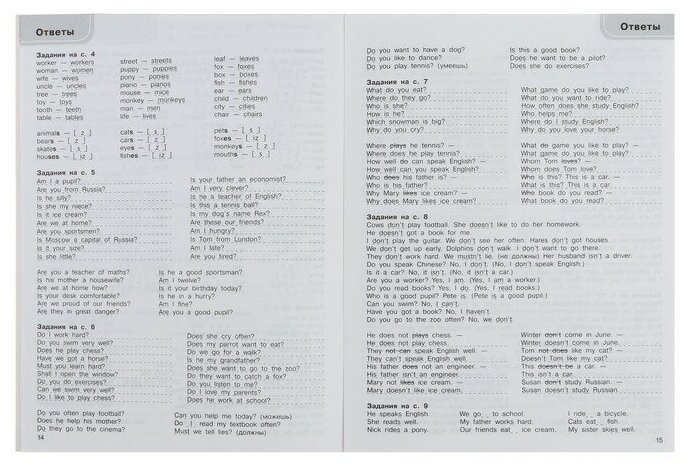 Ответы
Задания на с. 4
worker — workers
woman — women
wife — wives
uncle — uncles
tree — trees
toy — toys
tooth — teeth
table — tables
street — streets
puppy — puppies
pony — ponies
piano — pianos
mouse — mice
monkey — monkeys
man — men
life — lives
leaf — leaves
fox — foxes
box — boxes
fish — fishes
ear — ears
child — children
city — cities
chair — chairs
animals — [ z ]
bears — [ z ]
skates — [ s ]
houses — [ iz ]
cats — [ s ]
cars — [ z ]
eyes — [ z ]
fishes — [ iz ]
pets — [ s ]
foxes — [ iz ]
monkeys — [ z ]
mouths — [ s ]
Задания на с. 5
Am I a pupil?
Are you from Russia?
Is he silly?
Is she my niece?
Is it ice cream?
Are we at home?
Are you sportsmen?
Is Moscow a capital of Russia?
Is it your size?
Is she little?
Is your father an economist?
Am I very clever?
Is he a teacher of English?
Is this a tennis ball?
Is my dog's name Rex?
Are these our friends?
Am I hungry?
Is Tom from London?
Am I late?
Are you tired?
Are you a teacher of maths?
Is his mother a housewife?
Are we at home now?
Is your desk comfortable?
Are we proud of our friends?
Are they in great danger?
Is he a good sportsman?
Am I twelve?
Is it your birthday today?
Is he in a hurry?
Am I fine?
Are you a good pupil?
Задания на с. 6
Do I work hard?
Do you swim very well?
Does he play chess?
Have we got a horse?
Must you learn hard?
Shall I open the window?
Do you do exercises?
Can we swim very well?
Do I like to play chess?
Does she cry often?
Does my parrot want to eat?
Do we go for a walk?
Is he my grandfather?
Does she want to go to the zoo?
Do they want to catch a fox?
Do you listen to me?
Do I love my parents?
Does he work at school?
Do you often play football?
Does he help his mother?
Do they go to the cinema?
Can you help me today? (можешь)
Do I read my textbook often?
Must we tell lies? (должны)
14
Ответы
Do you want to have a dog?
Do you like to dance?
Do you play tennis? (умеешь)
Is this a good book?
Does he want to be a pilot?
Does she do exercises?
Задания на с. 7
What do you eat?
Where do they go?
Who is she?
How is he?
Which snowman is big?
Why do you cry?
What game do you like to play?
What do you want to ride?
How often does she study English?
Who helps me?
Where do I study English?
Why do you love your horse?
Where plays he tennis? —
Where does he play tennis?
How well do can speak English? —
How well can you speak English?
Who does his father is? —
Who is his father?
Why Mary likes ice cream? —
Why does Mary likes ice cream?
What do game you like to play? —
What game do you like to play?
Whom Tom loves? —
Whom does Tom love?
Who is this? This is a car. —
What is this? This is a car.
Who book do you read? —
What book do you read?
Задания на с. 8
Cows don't play football. She doesn't like to do her homework.
He doesn't got a book for me.
I don't play the guitar. We don't see her often. Hares don't got houses.
We don't get up early. Dolphins don't walk. I don't want to go there.
They don't work hard. We mustn't lie. (не должны) Her husband isn't a driver.
Do you speak Chinese? No, I don't. (No, I don't speak English.)
Is it a car? No, it isn't. (No, it isn't a car.)
Are you a worker? Yes, I am. (Yes, I am a worker.)
Do you read books? Yes, I do. (Yes, I read books.)
Who is a good pupil? Pete is. (Pete is a good pupil.)
Can you swim? No, I can't.
Have you got a book? No, I haven't.
Do you go to the zoo often? No, we don't.
He does not plays chess. —
He does not play chess.
They not can speak English well. —
They can't speak English well.
His father does not an engineer. —
His father isn't an engineer.
Mary not likes ice cream. —
Mary doesn't like ice cream.
Winter don't come in June. —
Winter doesn't come in June.
Tom not does like my cat? —
Doesn't Tom like my cat?
This doesn't be a car. —
This isn't a car.
Susan don't study Russian. —
Susan doesn't study Russian.
Задания на с. 9
He speaks English.
She reads well.
Nick rides a pony.
We go_ to school.
My father works hard.
Our friends eat_ ice cream.
I ride_ a bicycle.
Cats eat_ fish.
My sister skies well.
15